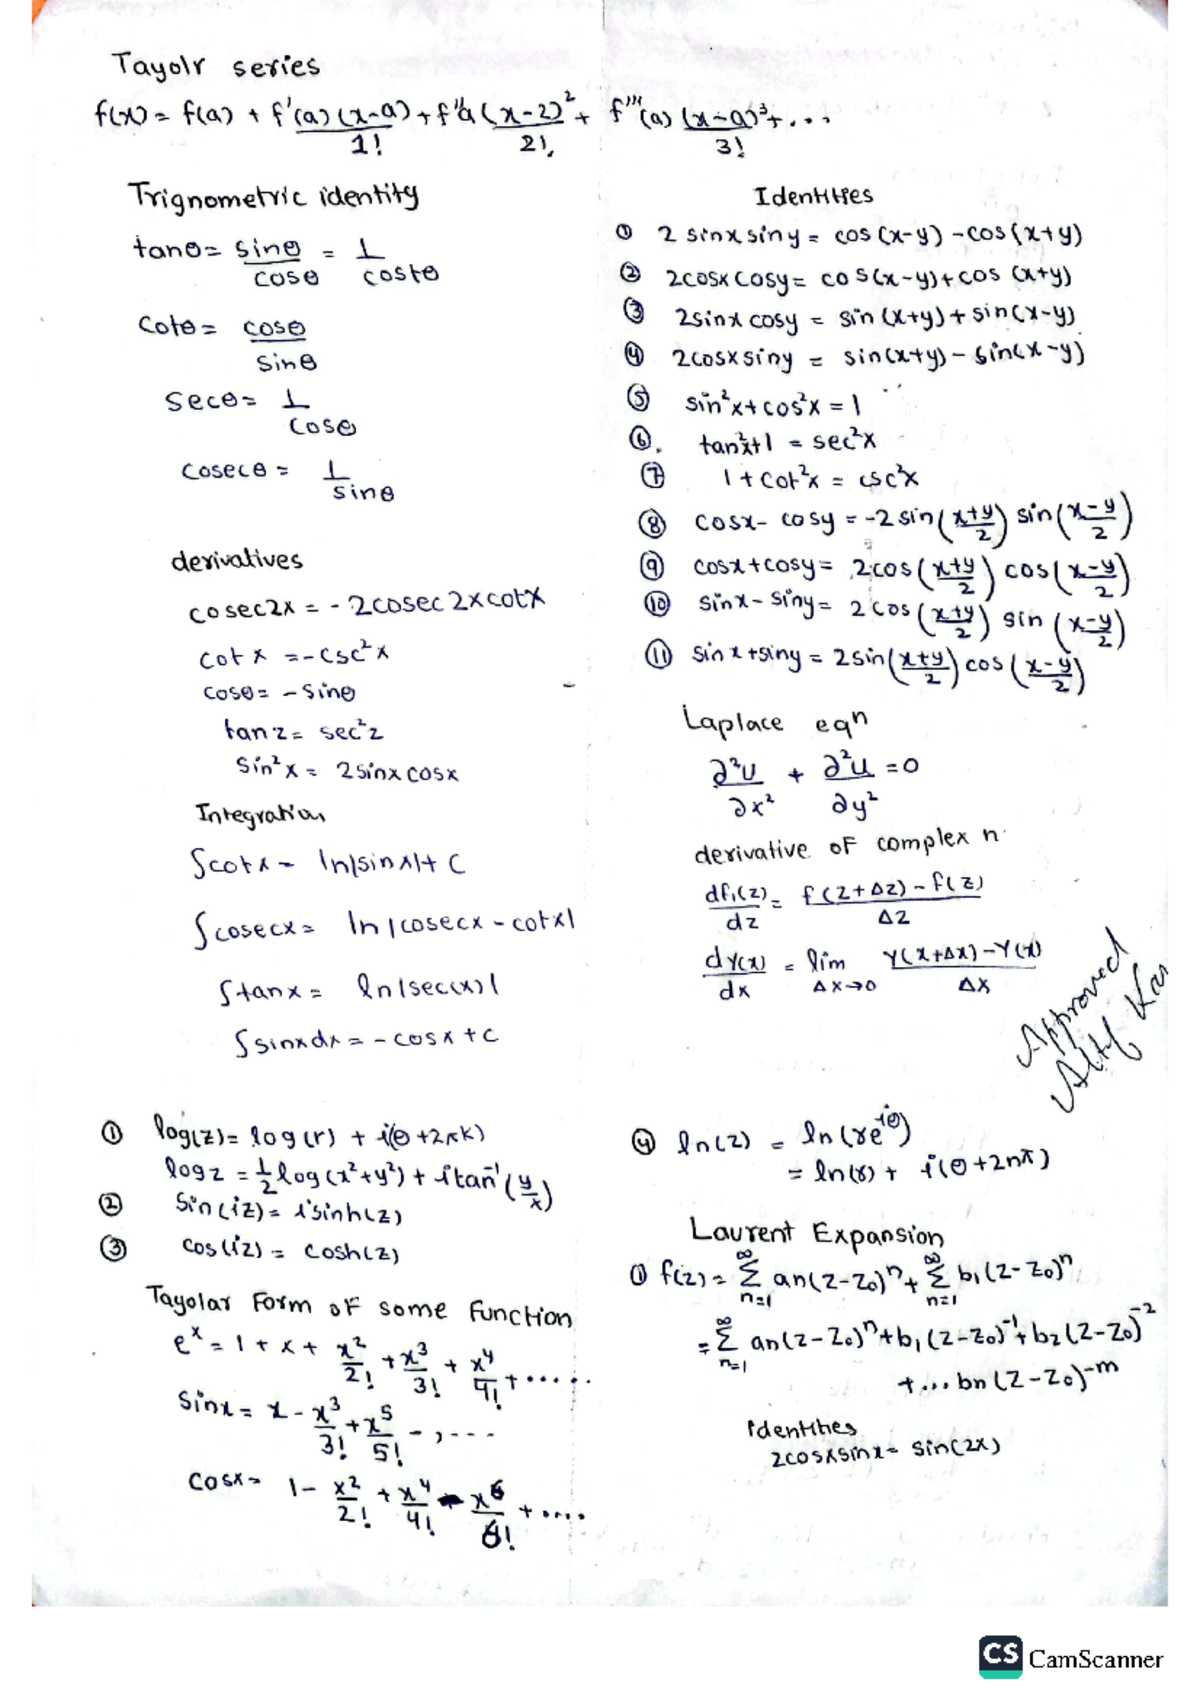 Tayolr series
f(x) = f(a) + f'(a) (x-a)/1! + f''a (x-2)²/2! + f'''(a) (x-a)³/3! + ...
Trignometric identity
tanθ = sinθ/cosθ = 1/cotθ
cotθ = cosθ/sinθ
secθ = 1/cosθ
cosecθ = 1/sinθ
derivatives
cosec2x = -2cosec2xcotx
cotx = -csc²x
cosθ = -sinθ
tanz = sec²z
sin²x = 2sinxcosx
Integration
∫cotx = ln|sinx|+ c
∫cosecx = ln|cosecx - cotx|
∫tanx = ln|sec(x)|
∫sinxdx = -cosx + c
Identities
① 2 sinxsiny = cos(x-y) - cos(x+y)
② 2cosxcosy = cos(x-y)+cos(x+y)
③ 2sinxcosy = sin(x+y)+sin(x-y)
④ 2cosxsiny = sin(x+y) - sin(x-y)
⑤ sin²x+cos²x = 1
⑥. tan²x+1 = sec²x
⑦ 1+cot²x = csc²x
⑧ cosx- cosy = -2sin(x+y/2) sin(x-y/2)
⑨ cosx+cosy = 2cos(x+y/2) cos(x-y/2)
⑩ sinx- siny = 2cos(x+y/2) sin(x-y/2)
⑪ sinx+siny = 2sin(x+y/2) cos(x-y/2)
Laplace eqⁿ
∂²U/∂x² + ∂²u/∂y² = 0
derivative of complex n.
df₁(z)/dz = f(z+Δz) - f(z)/Δz
dy(x)/dx = lim Δx→0 Y(x+Δx) - Y(x)/Δx
Approved
① log(z) = log(r) + i(θ+2πk)
logz = ½log(x²+y²) + itan⁻¹(y/x)
② sin(iz) = isinh(z)
③ cos(iz) = cosh(z)
Tayolar Form of some function
eˣ = 1 + x + x²/2! + x³/3! + x⁴/4! + .....
sinx = x - x³/3! + x⁵/5! - , ----
cosx = 1 - x²/2! + x⁴/4! - x⁶/6! + ....
④ ln(z) = ln(reⁱᶿ)
= ln(r) + i(θ+2nπ)
Laurent Expansion
① f(z) = ∞Σn=1 an(z-z₀)ⁿ + ∞Σn=1 b₁(z-z₀)ⁿ
= ∞Σn=1 an(z-z₀)ⁿ+b₁(z-z₀)⁻¹+b₂(z-z₀)⁻²
+...bn(z-z₀)⁻ᵐ
Identities
2cosxsinx = sin(2x)
CS CamScanner